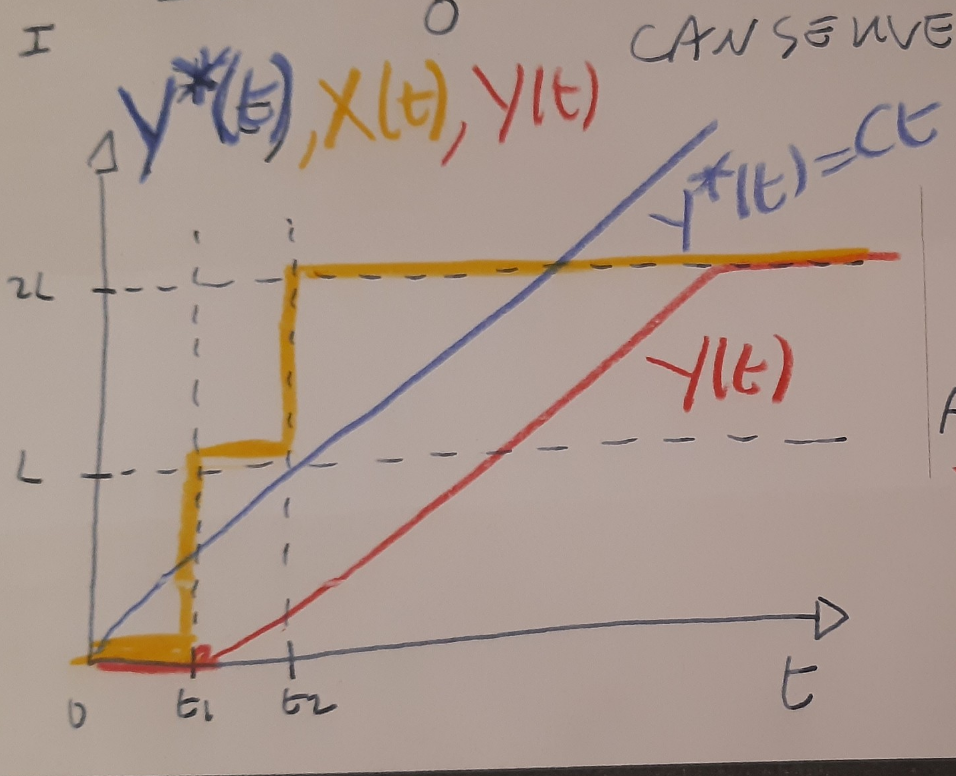 I
O
CAN SERVE
Y*(t), X(t), Y(t)
Y*(t)=Ct
2L
Y(t)
L
0
t1
t2
t